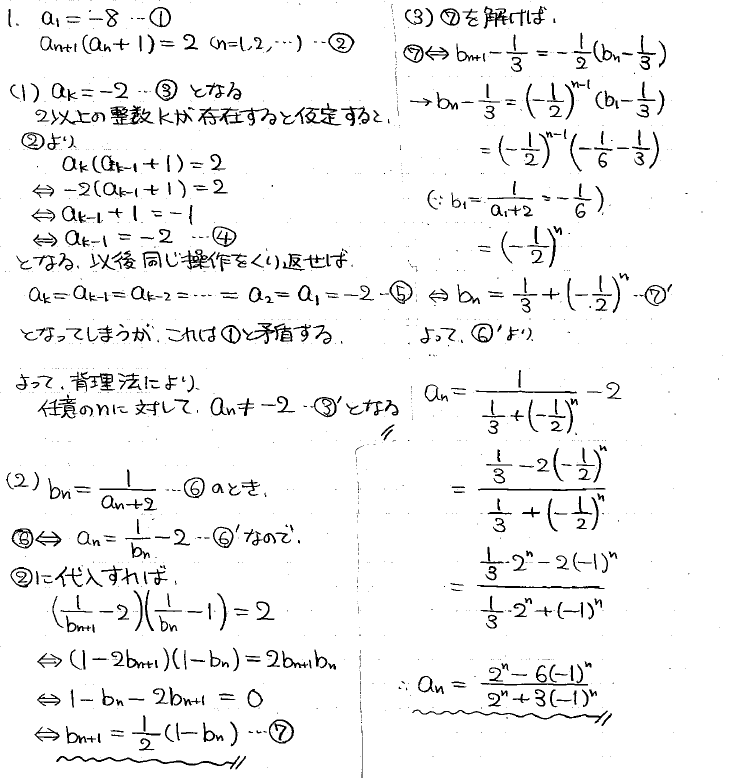 1. a₁ = -8 …①
aₙ₊₁(aₙ+1) = 2 (n=1,2,…) …②
(1) aₖ = -2 …③ となる
2以上の整数kが存在すると仮定すると、
②より
aₖ(aₖ₋₁+1) = 2
⇔ -2(aₖ₋₁+1) = 2
⇔ aₖ₋₁+1 = -1
⇔ aₖ₋₁ = -2 …④
となる. 以後同じ操作をくり返せば
aₖ = aₖ₋₁ = aₖ₋₂ = … = a₂ = a₁ = -2 …⑤
となってしまうが、これは①と矛盾する.
よって、背理法により、
任意のnに対して、aₙ ≠ -2 …③' となる
(2) bₙ = 1/(aₙ+2) …⑥ のとき、
⑥⇔ aₙ = 1/bₙ - 2 …⑥' なので、
②に代入すれば、
(1/bₙ₊₁ - 2)(1/bₙ - 1) = 2
⇔ (1-2bₙ₊₁)(1-bₙ) = 2bₙ₊₁bₙ
⇔ 1-bₙ-2bₙ₊₁ = 0
⇔ bₙ₊₁ = 1/2(1-bₙ) …⑦
(3) ⑦を解けば、
⑦⇔ bₙ₊₁ - 1/3 = -1/2(bₙ - 1/3)
→ bₙ - 1/3 = (-1/2)ⁿ⁻¹(b₁ - 1/3)
= (-1/2)ⁿ⁻¹(-1/6 - 1/3)
(∵ b₁ = 1/(a₁+2) = -1/6)
= (-1/2)ⁿ
⇔ bₙ = 1/3 + (-1/2)ⁿ …⑦'
よって、⑥'より
aₙ = 1/(1/3 + (-1/2)ⁿ) - 2
= (1/3 - 2(-1/2)ⁿ)/(1/3 + (-1/2)ⁿ)
= (1/3・2ⁿ - 2(-1)ⁿ)/(1/3・2ⁿ + (-1)ⁿ)
∴ aₙ = (2ⁿ - 6(-1)ⁿ)/(2ⁿ + 3(-1)ⁿ)